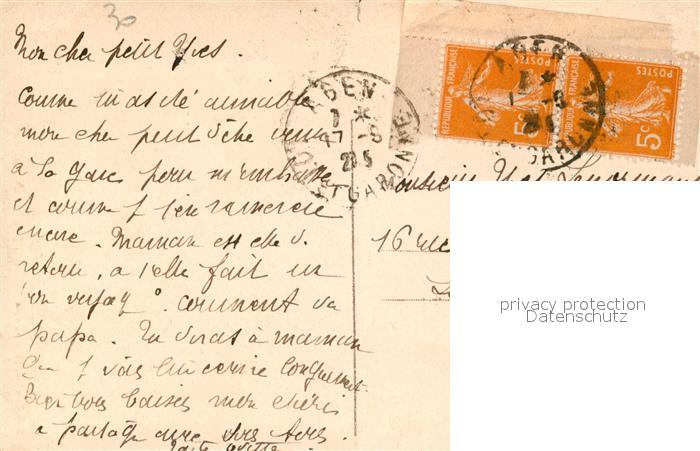 30
Mon cher petit Yves.
Comme tu as été aimable
mon cher petit d'être venu
à la gare pour m'embrasser
et comme je t'en remercie
encore. Maman est elle de
retour, a t elle fait un
bon voyage. comment va
papa. Tu diras à maman
que je vais lui écrire longuement.
Bien bons baisers mon chéri
à partager avec
AGEN
LOT-ET-GARONNE
POSTES
REPUBLIQUE FRANÇAISE
5c
POSTES
REPUBLIQUE FRANÇAISE
5c
AGEN
GARONNE
Monsieur
16 rue
privacy protection
Datenschutz